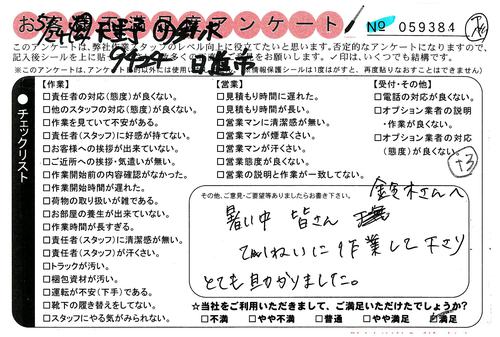 お客様不満足度アンケート
№ 059384
このアンケートは、弊社作業スタッフのレベル向上に役立てたいと思います。否定的なアンケートになりますので、
※このアンケートは、アンケート目的以外には使用い
情報保護シールは1度はがすと、再度貼りなおすことはできません)
チェックリスト
【作業】
□責任者の対応(態度)が良くない。
□他のスタッフの対応(態度)が良くない。
□作業を見ていて不安がある。
□責任者(スタッフ)に好感が持てない。
□お客様への挨拶が出来ていない。
□ご近所への挨拶・気遣いが無い。
□作業開始前の内容確認がなかった。
□作業開始時間が遅れた。
□荷物の取り扱いが雑である。
□お部屋の養生が出来ていない。
□作業時間が長すぎる。
□責任者(スタッフ)に清潔感が無い。
□責任者(スタッフ)が汗くさい。
□トラックが汚い。
□梱包資材が汚い。
□運転が不安(下手)である。
□靴下の履き替えをしてない。
□スタッフにやる気がみられない。
【営業】
□見積もり時間に遅れた。
□見積もり時間が長い。
□営業マンに清潔感が無い。
□営業マンが煙草くさい。
□営業マンが汗くさい。
□営業態度が良くない。
□営業の説明と作業が一致してない。
【受付・その他】
□電話の対応が良くない。
□オプション業者の説明
・作業が良くない。
□オプション業者の対応
(態度)が良くない。
+3
その他、ご意見・ご要望等ありましたらお書き下さい。
鈴木さんへ
暑い中 皆さん
ていねいに作業して下さり
とても助かりました。
☆当社をご利用いただきまして、ご満足いただけたでしょうか?
□不満 □やや不満 □普通 □やや満足 □満足